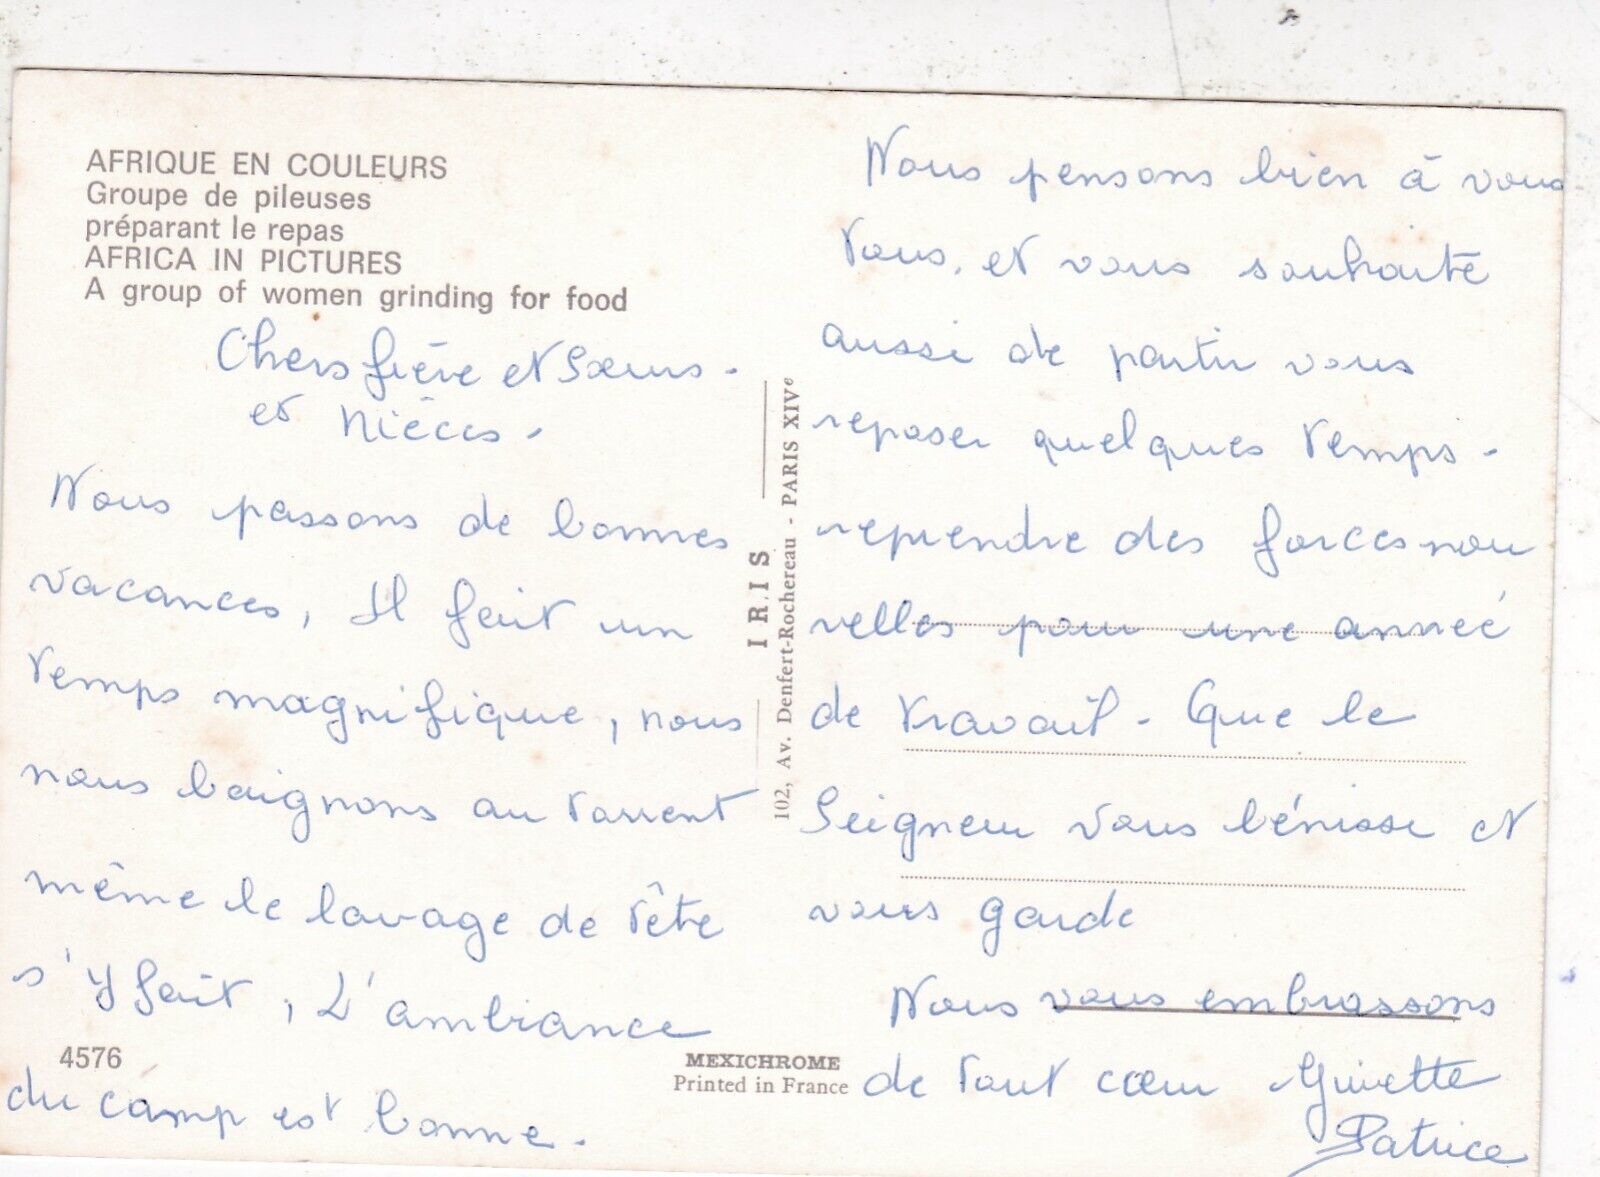 AFRIQUE EN COULEURS
Groupe de pileuses
préparant le repas
AFRICA IN PICTURES
A group of women grinding for food
Chers frère et Sœurs.
et Nièces.
Nous passons de bonnes
vacances, Il fait un
temps magnifique, nous
nous baignons au torrent
même le lavage de tête
s'y fait, L'ambiance
du camp est bonne.
4576
IRIS
102, Av. Denfert-Rochereau - PARIS XIVe
MEXICHROME
Printed in France
Nous pensons bien à vous
tous, et vous souhaite
aussi de partir vous
reposer quelques temps.
reprendre des forces nou
velles pour une année
de travail. Que le
Seigneur vous bénisse et
vous garde
Nous vous embrassons
de tout cœur Ginette
Patrice